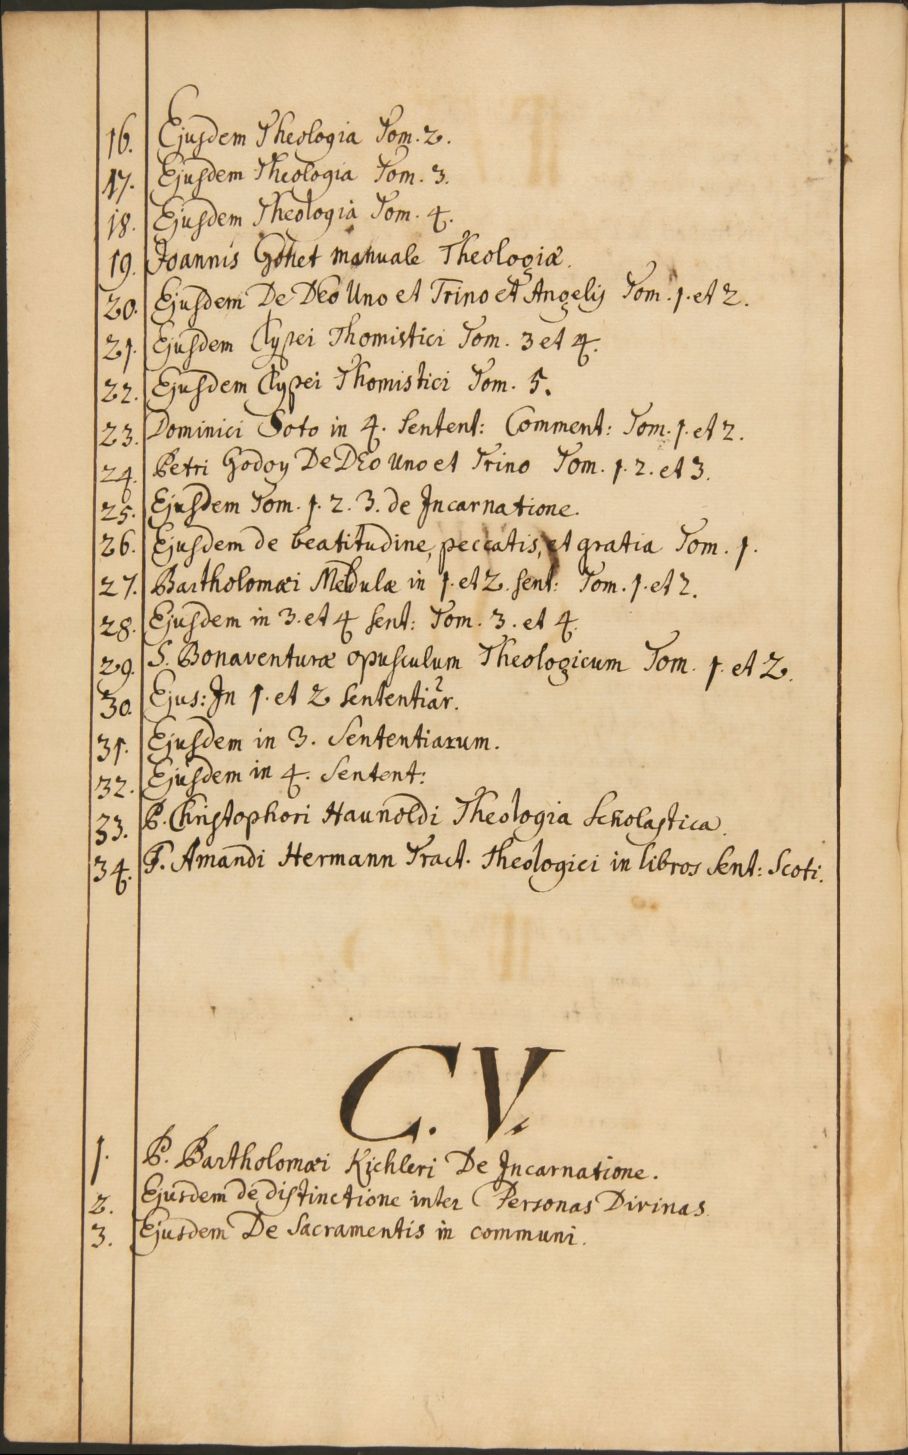 16. Ejusdem Theologia Tom. 2.
17. Ejusdem Theologia Tom. 3.
18. Ejusdem Theologia Tom. 4.
19. Joannis Gonet manuale Theologiæ.
20. Ejusdem De DEo Uno et Trino et Angelis Tom. 1. et 2.
21. Ejusdem Clypei Thomistici Tom. 3 et 4.
22. Ejusdem Clypei Thomistici Tom. 5.
23. Dominici Soto in 4. Sentent: Comment: Tom. 1. et 2.
24. Petri Godoy De DEo Uno et Trino Tom. 1. 2. et 3.
25. Ejusdem Tom. 1. 2. 3. de Incarnatione.
26. Ejusdem de beatitudine, peccatis, et gratia Tom. 1.
27. Bartholomæi Medulæ in 1. et 2. sent: Tom. 1. et 2.
28. Ejusdem in 3. et 4 sent: Tom. 3. et 4.
29. S. Bonaventuræ opusculum Theologicum Tom. 1. et 2.
30. Ejus: In 1. et 2 sententiar.
31. Ejusdem in 3. Sententiarum.
32. Ejusdem in 4. Sentent:
33. P. Christophori Haunoldi Theologia Scholastica.
34. F. Amandi Hermann Tract. Theologici in libros Sent: Scoti.
C. V.
1. P. Bartholomæi Kichleri De Incarnatione.
2. Ejusdem de distinctione inter Personas Divinas
3. Ejusdem De Sacramentis in communi.